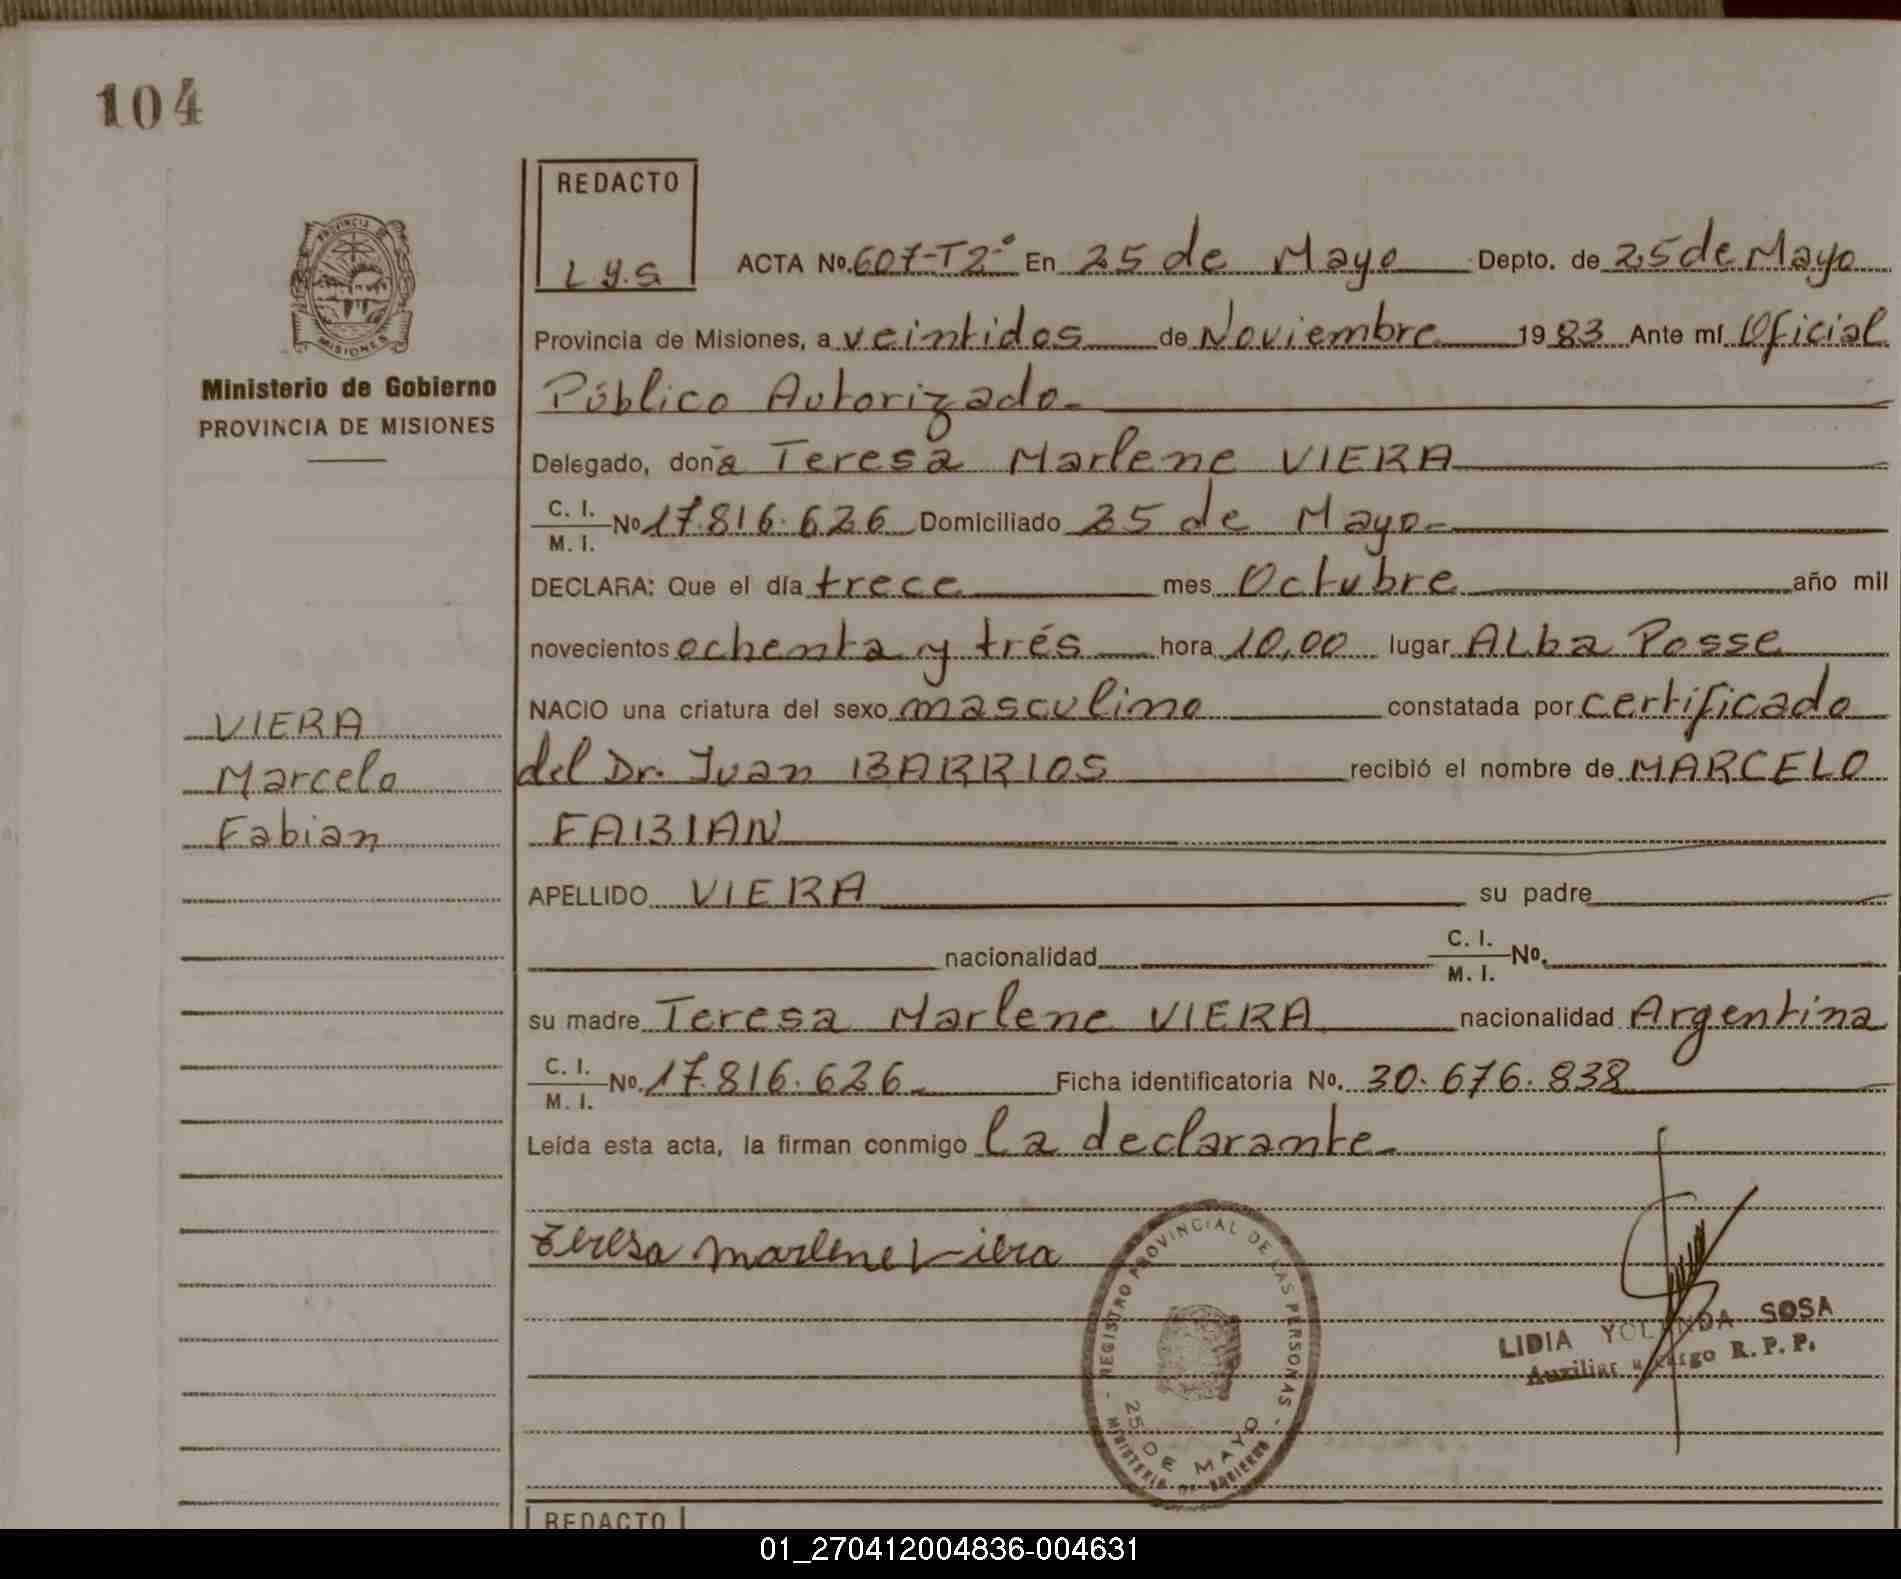 104
REDACTO
L y.S
ACTA No. 607-T2º En 25 de Mayo Depto. de 25 de Mayo
PROVINCIA DE
MISIONES
Provincia de Misiones, a veintidos de Noviembre 1983 Ante mí Oficial
Ministerio de Gobierno
Público Autorizado-
PROVINCIA DE MISIONES
Delegado, doña Teresa Marlene VIERA
C. I.
M. I. No 17.816.626 Domiciliado 25 de Mayo-
DECLARA: Que el día trece mes Octubre año mil
novecientos ochenta y trés hora 10,00 lugar ALba Posse
NACIO una criatura del sexo masculino constatada por certificado
VIERA
del Dr. Juan BARRIOS recibió el nombre de MARCELO
Marcelo
FABIAN
Fabian
APELLIDO VIERA su padre
nacionalidad C. I.
M. I. No.
su madre Teresa Marlene VIERA nacionalidad Argentina
C. I.
M. I. No. 17.816.626- Ficha identificatoria No. 30.676.838
Leída esta acta, la firman conmigo la declarante-
Teresa Marlene Viera
REGISTRO PROVINCIAL DE LAS PERSONAS
25 DE MAYO
MINISTERIO DE GOBIERNO
LIDIA YOLANDA SOSA
Auxiliar a cargo R. P. P.
REDACTO
01_270412004836-004631